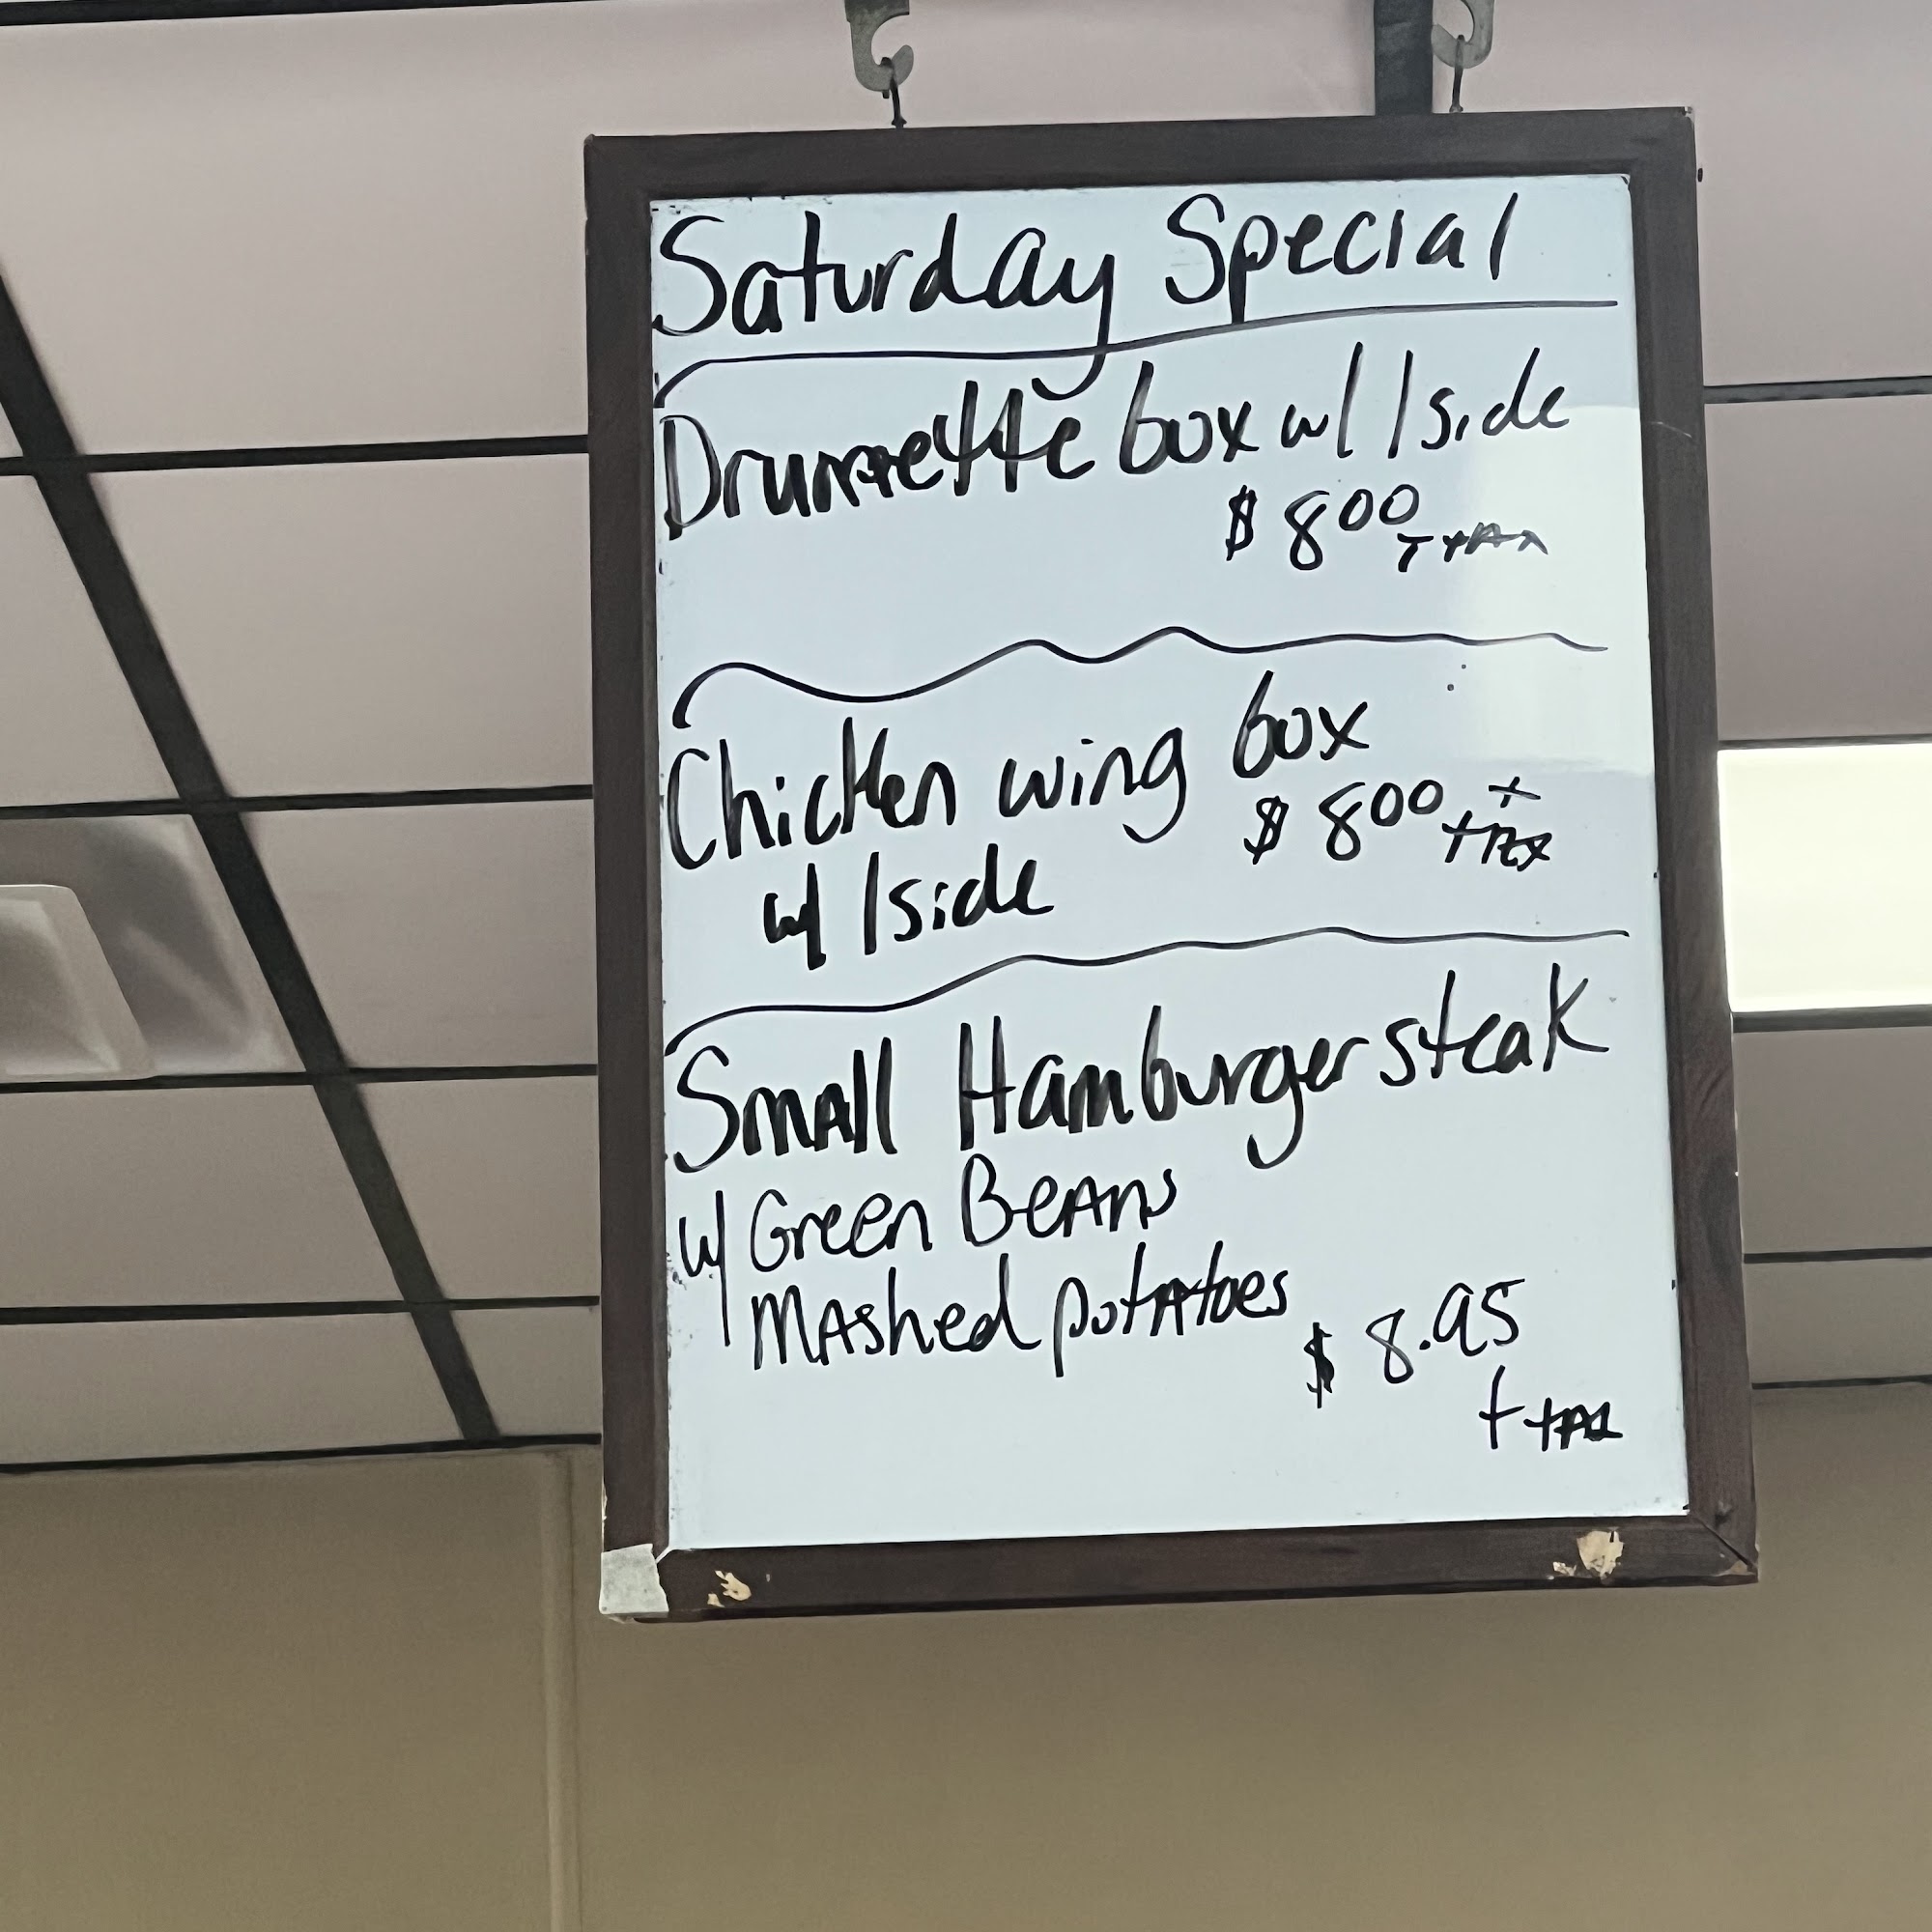 Saturday Special
Drumette box w/ 1 side
$ 8.00 + tax
Chicken wing box
$ 8.00 + tax
w/ 1 side
Small Hamburger steak
w/ Green Beans
Mashed potatoes
$ 8.95
+ tax